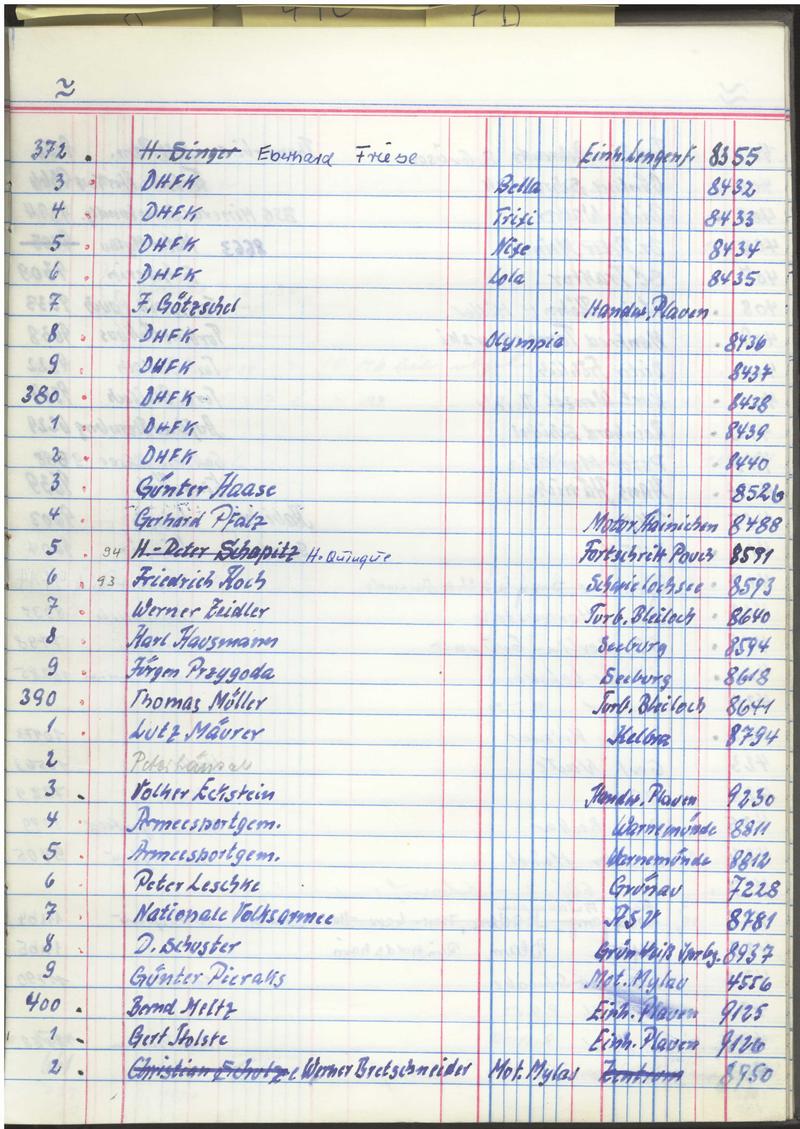 ~
~
372 . H. Singer Eberhard Friese Einh. Lengenf. 8355
3 . DHFK Bella 8432
4 . DHFK Trixi 8433
5 . DHFK Nixe 8434
6 . DHFK Lola 8435
7 . F. Götzschel Handw. Plaven
8 . DHFK Olympia 8436
9 . DHFK 8437
380 . DHFK 8438
1 . DHFK 8439
2 . DHFK 8440
3 . Günter Haase 8526
4 . Gerhard Pfalz Motor Hainichen 8488
5 . 94 H-Peter Schapitz H. Quinque Fortschritt Pouch 8591
6 . 93 Friedrich Koch Schwielochsee 8593
7 . Werner Zeidler Turb. Bleiloch 8640
8 . Karl Hausmann Seeburg 8594
9 . Jürgen Przygoda Seeburg 8618
390 . Thomas Müller Turb. Bleiloch 8641
1 . Lutz Mäurer Kelbra 8794
2 Peter
3 . Volker Eckstein Handw. Plaven 9230
4 . Armeesportgem. Warnemünde 8811
5 . Armeesportgem. Warnemünde 8812
6 . Peter Leschke Grünau 7228
7 . Nationale Volksarmee ASV 8781
8 . D. Schuster Grün Weiß 8937
9 . Günter Pieraks Mot. Mylau 4556
400 . Bernd Meltz Einh. Plaven 9125
1 . Gert Holste Einh. Plaven 9126
2 . Christian Scholz Werner Bretschneider Mot. Mylau Zentrum 8950